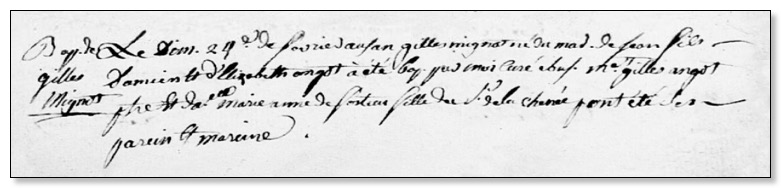 Bap. de Le Dim. 24e de fevrier au san gilles mignot né du mad. de jean fils
gilles Damient et d'Elizabeth angot a été bap. par moi curé gilles angot
Mignot pbre et da.lle marie anne de fille du Sr. de la chenée ont été les
parein et mareine.